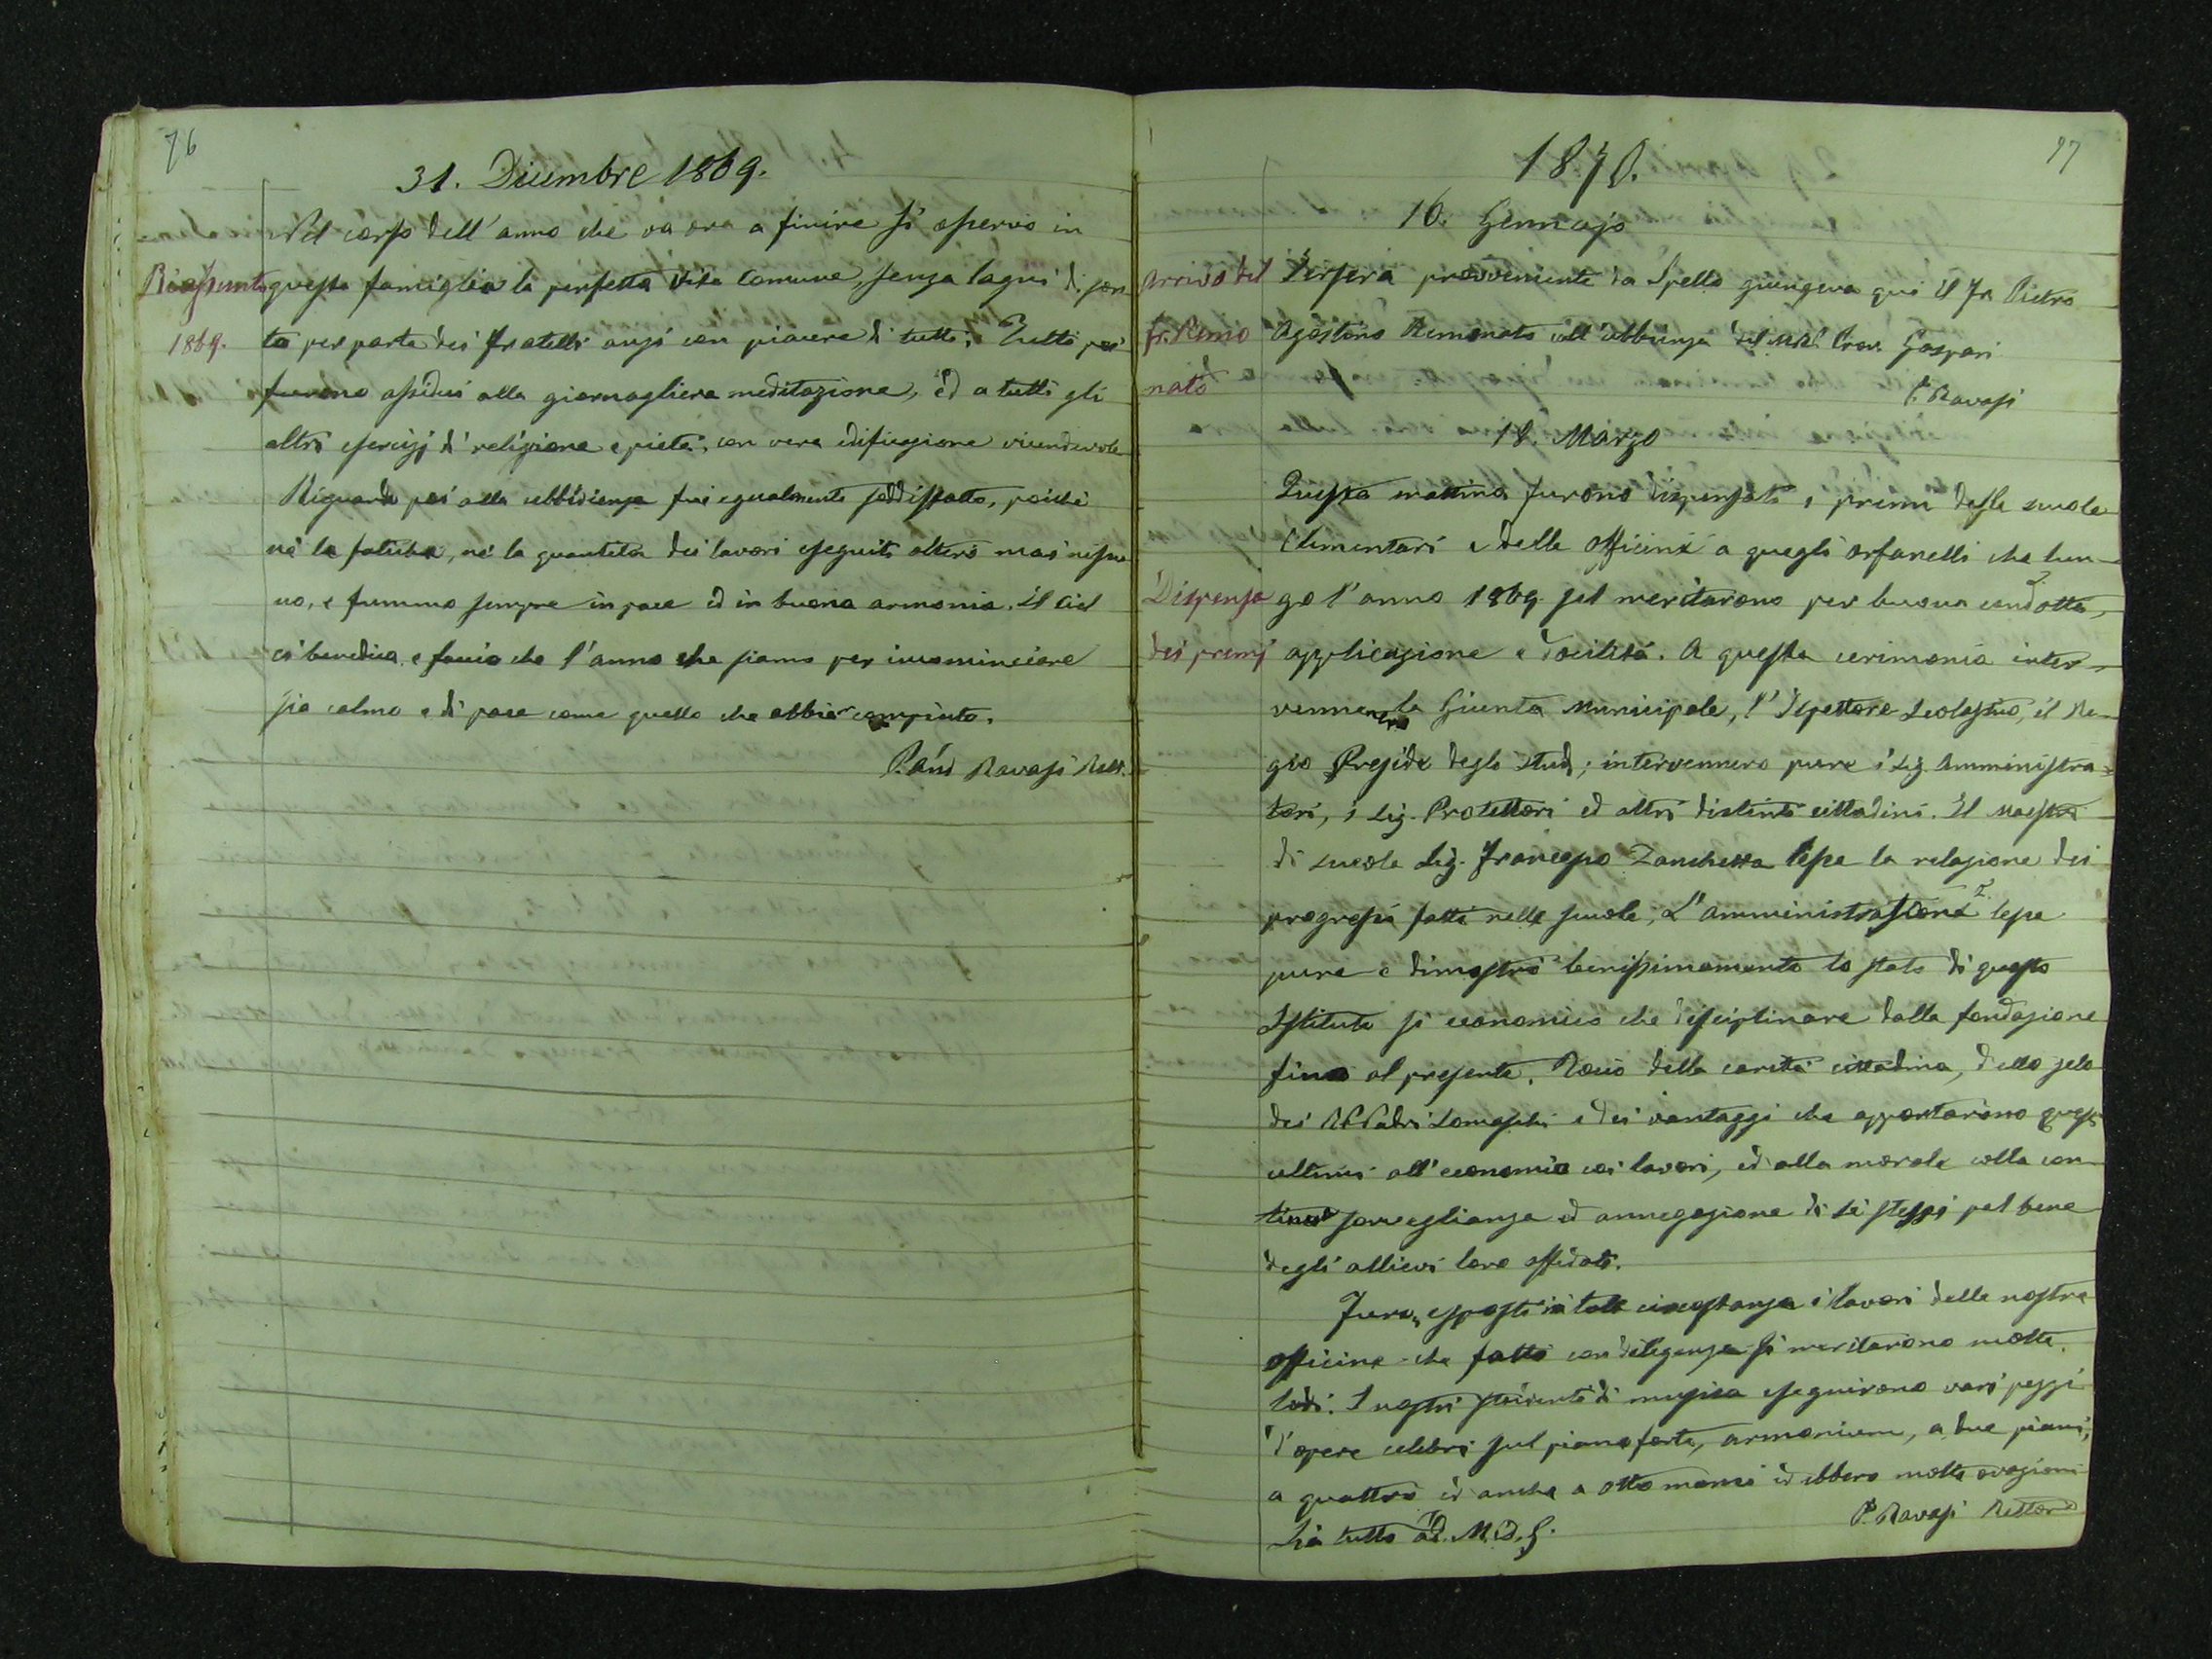 76
31. Dicembre 1869.
Nel corso dell'anno che va ora a finire si osservò in
Riassunto questa famiglia la perfetta vita comune, senza lagni di sor
1869. ta per parte dei fratelli anzi con piacere di tutti. Tutti poi
furono assidui alla giornagliera meditazione, ed a tutti gli
altri esercizj di religione e pietà, con vera edificazione vicendevole
Riguardo poi alla ubbidienza fui egualmente soddisfatto, poichè
nè la fatica, nè la quantità dei lavori eseguiti alterò mai nessu
no, e fummo sempre in pace ed in buona armonia. Il Ciel
ci benedica e faccia che l'anno che siamo per incominciare
sia calmo e di pace come quello che abbiam compiuto.
Ravasi Rett.
97
1870.
16. Gennajo
Arrivo del Jersera provveniente da Spello giungeva qui il Fr Pietro
fr. Remo Agostino Remonato coll'ubbienza del M.R. Prov. Gaspari
nato
P. Ravasi
18. Marzo
Questa mattina furono dispensati i premi delle scuole
elementari e delle officine a quegli orfanelli che lun
Dispensa go l'anno 1869 sel meritarono per buona condotta,
dei premj applicazione e docilità. A questa cerimonia inter
vennero la Giunta Municipale, l'Ispettore Scolastico, il Re
gio Preside degli studj; intervennero pure i Sig. Amministra
tori, i Sig. Protettori ed altri distinti cittadini. Il Maestro
di scuola Sig. Francesco Zanchetta lesse la relazione dei
progressi fatti nelle scuole; L'Amministrazione lesse
pure e dimostrò benissimamente lo stato di questo
Istituto sì economico che disciplinare dalla fondazione
fino al presente. Toccò della carità cittadina, dello zelo
dei RR Padri Somaschi e dei vantaggi che apportarono questi
ultimi all'economia coi lavori, ed alla morale colla con
tinua sorveglianza ed annegazione di sè stessi pel bene
degli allievi loro affidati.
Furon esposti in tale circostanza i lavori delle nostre
officine che fatti con diligenza si meritarono molte
lodi. I nostri studenti di musica eseguirono varj pezzi
d'opere celebri sul pianoforte, armonium, a due piani,
a quattro ed anche a otto mani ed ebbero molte ovazioni
Sia tutto ad. M. D. G. P. Ravasi Rettore